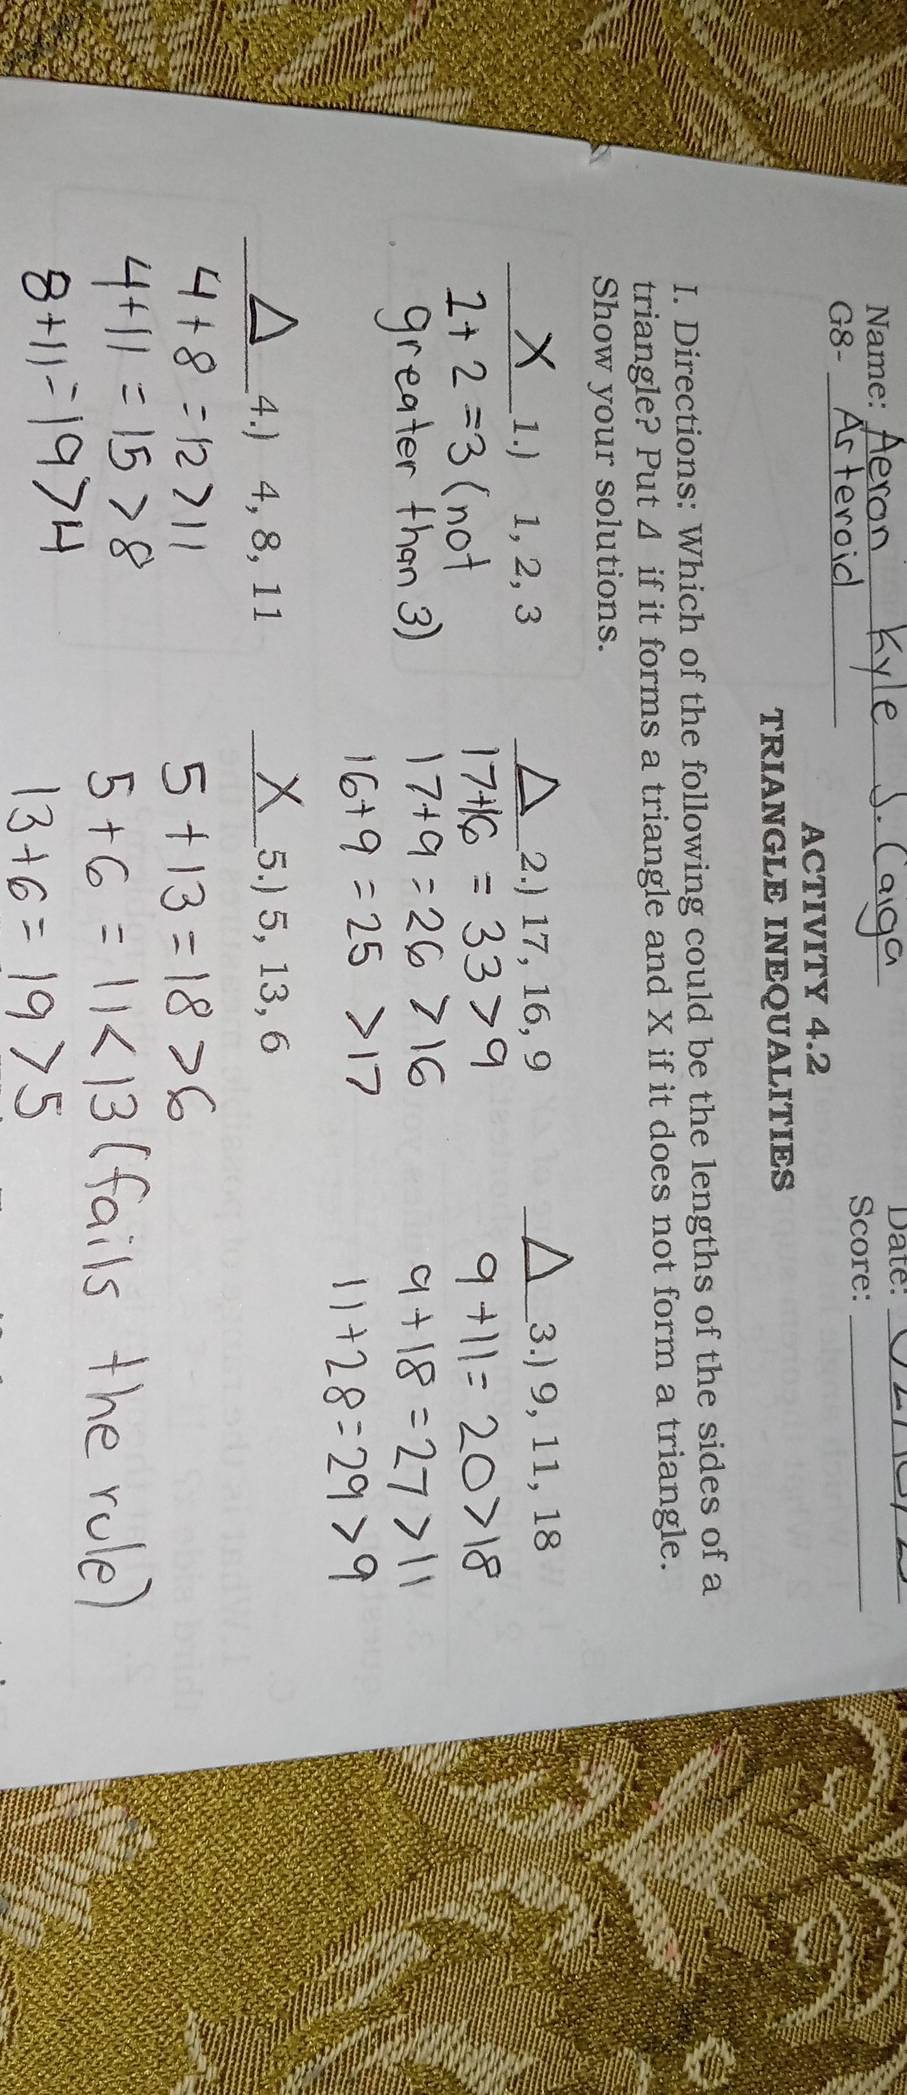 Name: Aeron Kyle J. Caiga
Date:
G8- Arteroid
Score:
ACTIVITY 4.2
TRIANGLE INEQUALITIES
I. Directions: Which of the following could be the lengths of the sides of a
triangle? Put Δ if it forms a triangle and X if it does not form a triangle.
Show your solutions.
X 1.) 1, 2, 3
2+2=3 (not
greater than 3)
Δ 2.) 17, 16, 9
17+16 = 33>9
17+9=26>16
16+9=25 >17
Δ 3.) 9, 11, 18
9+11=20>18
9+18=27>11
11+28=29>9
Δ 4.) 4, 8, 11
4+8=12>11
4+11=15>8
8+11=19>4
X 5.) 5, 13, 6
5+13=18>6
5+6=11<13 (fails the rule)
13+6=19>5